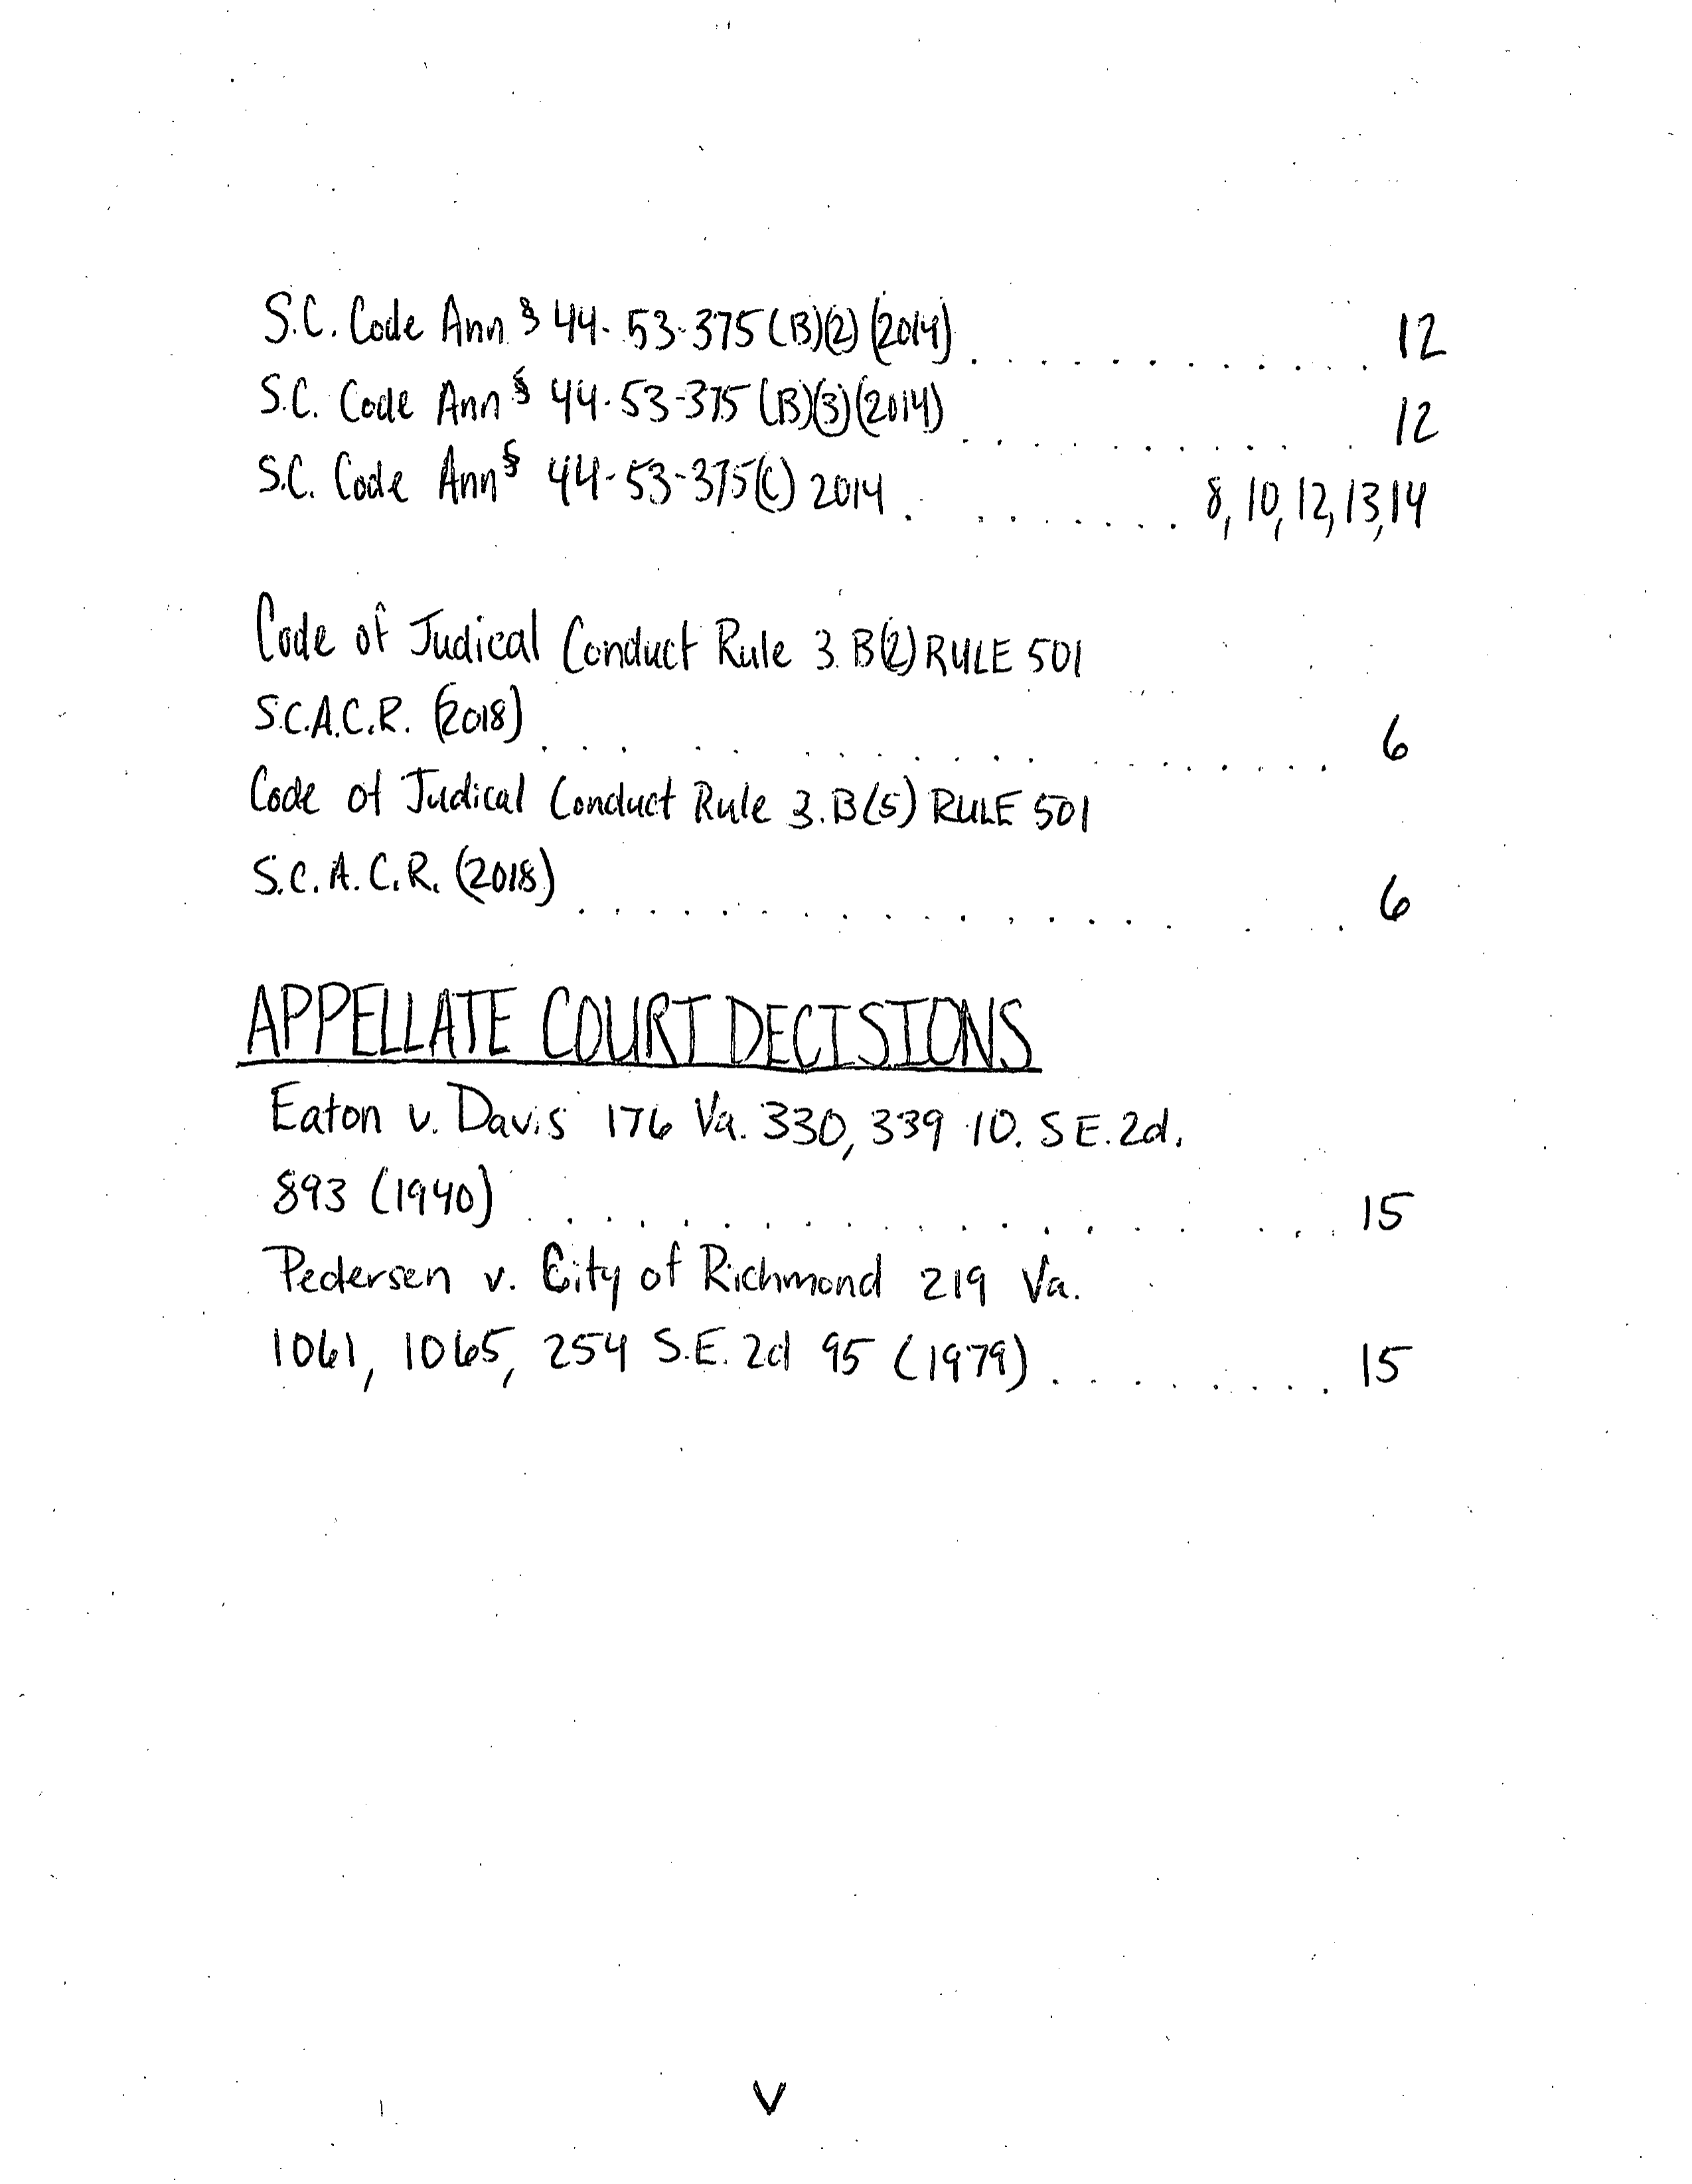 S.C. Code Ann § 44-53-375(B)(2)(2014) . . . . . . . . . . . . 12
S.C. Code Ann § 44-53-375(B)(3)(2014) . . . . . . . . . . . 12
S.C. Code Ann § 44-53-375(C) 2014 . . . . . . . . 8, 10, 12, 13, 14
Code of Judical Conduct Rule 3.B(2) RULE 501
S.C.A.C.R. (2018) . . . . . . . . . . . . . . . . . 6
Code of Judical Conduct Rule 3.B(5) RULE 501
S.C.A.C.R. (2018) . . . . . . . . . . . . . . . . . 6
APPELLATE COURT DECISIONS
Eaton v. Davis 176 Va. 330, 339 10. S E. 2d.
893 (1940) . . . . . . . . . . . . . . . . . 15
Pedersen v. City of Richmond 219 Va.
1061, 1065, 254 S.E. 2d 95 (1979) . . . . . . . . 15
V